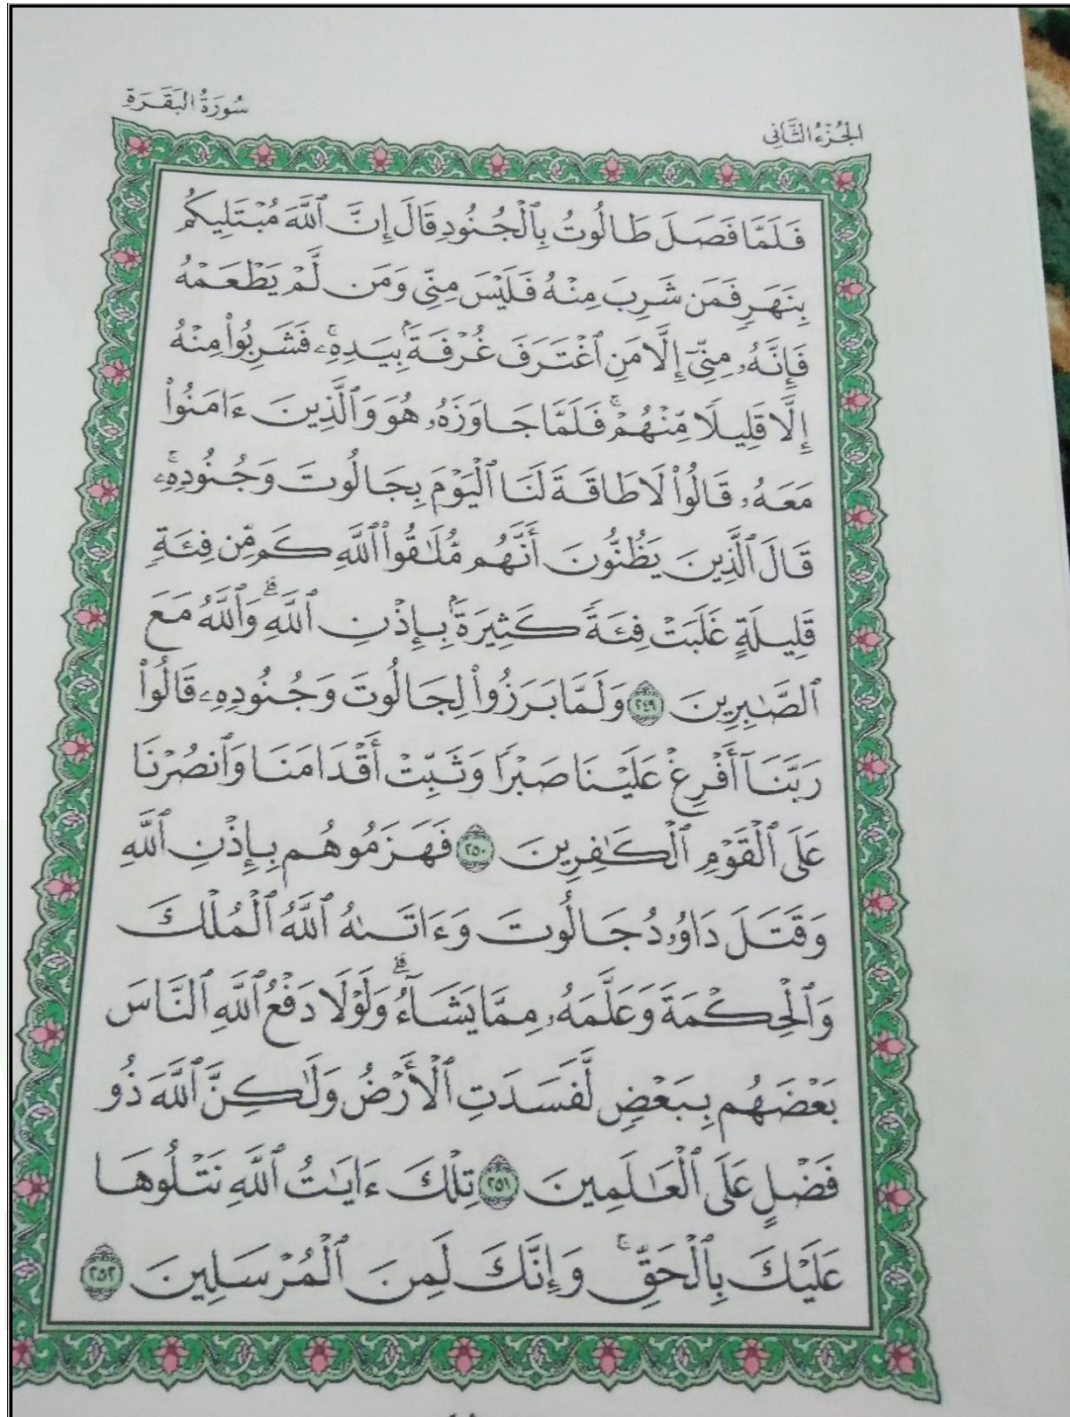 الجُزْءُ الثَّانِي
سُورَةُ البَقَرَةِ
فَلَمَّا فَصَلَ طَالُوتُ بِٱلۡجُنُودِ قَالَ إِنَّ ٱللَّهَ مُبۡتَلِيكُم
بِنَهَرٖ فَمَن شَرِبَ مِنۡهُ فَلَيۡسَ مِنِّي وَمَن لَّمۡ يَطۡعَمۡهُ
فَإِنَّهُۥ مِنِّيٓ إِلَّا مَنِ ٱغۡتَرَفَ غُرۡفَةَۢ بِيَدِهِۦۚ فَشَرِبُواْ مِنۡهُ
إِلَّا قَلِيلٗا مِّنۡهُمۡۚ فَلَمَّا جَاوَزَهُۥ هُوَ وَٱلَّذِينَ ءَامَنُواْ
مَعَهُۥ قَالُواْ لَا طَاقَةَ لَنَا ٱلۡيَوۡمَ بِجَالُوتَ وَجُنُودِهِۦۚ
قَالَ ٱلَّذِينَ يَظُنُّونَ أَنَّهُم مُّلَٰقُواْ ٱللَّهِ كَم مِّن فِئَةٖ
قَلِيلَةٍ غَلَبَتۡ فِئَةٗ كَثِيرَةَۢ بِإِذۡنِ ٱللَّهِۗ وَٱللَّهُ مَعَ
ٱلصَّٰبِرِينَ ٢٤٩ وَلَمَّا بَرَزُواْ لِجَالُوتَ وَجُنُودِهِۦ قَالُواْ
رَبَّنَآ أَفۡرِغۡ عَلَيۡنَا صَبۡرٗا وَثَبِّتۡ أَقۡدَامَنَا وَٱنصُرۡنَا
عَلَى ٱلۡقَوۡمِ ٱلۡكَٰفِرِينَ ٢٥٠ فَهَزَمُوهُم بِإِذۡنِ ٱللَّهِ
وَقَتَلَ دَاوُۥدُ جَالُوتَ وَءَاتَىٰهُ ٱللَّهُ ٱلۡمُلۡكَ
وَٱلۡحِكۡمَةَ وَعَلَّمَهُۥ مِمَّا يَشَآءُۗ وَلَوۡلَا دَفۡعُ ٱللَّهِ ٱلنَّاسَ
بَعۡضَهُم بِبَعۡضٖ لَّفَسَدَتِ ٱلۡأَرۡضُ وَلَٰكِنَّ ٱللَّهَ ذُو
فَضۡلٍ عَلَى ٱلۡعَٰلَمِينَ ٢٥١ تِلۡكَ ءَايَٰتُ ٱللَّهِ نَتۡلُوهَا
عَلَيۡكَ بِٱلۡحَقِّۚ وَإِنَّكَ لَمِنَ ٱلۡمُرۡسَلِينَ ٢٥٢